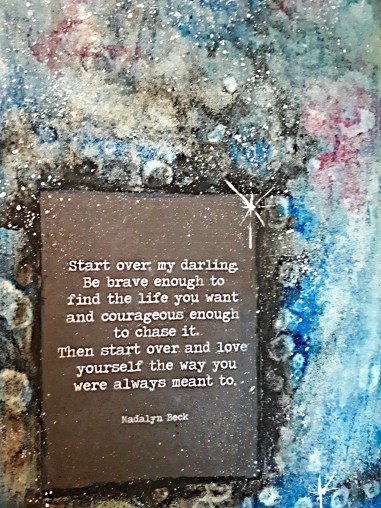 Start over, my darling.
Be brave enough to
find the life you want
and courageous enough
to chase it.
Then start over and love
yourself the way you
were always meant to.
Madalyn Beck